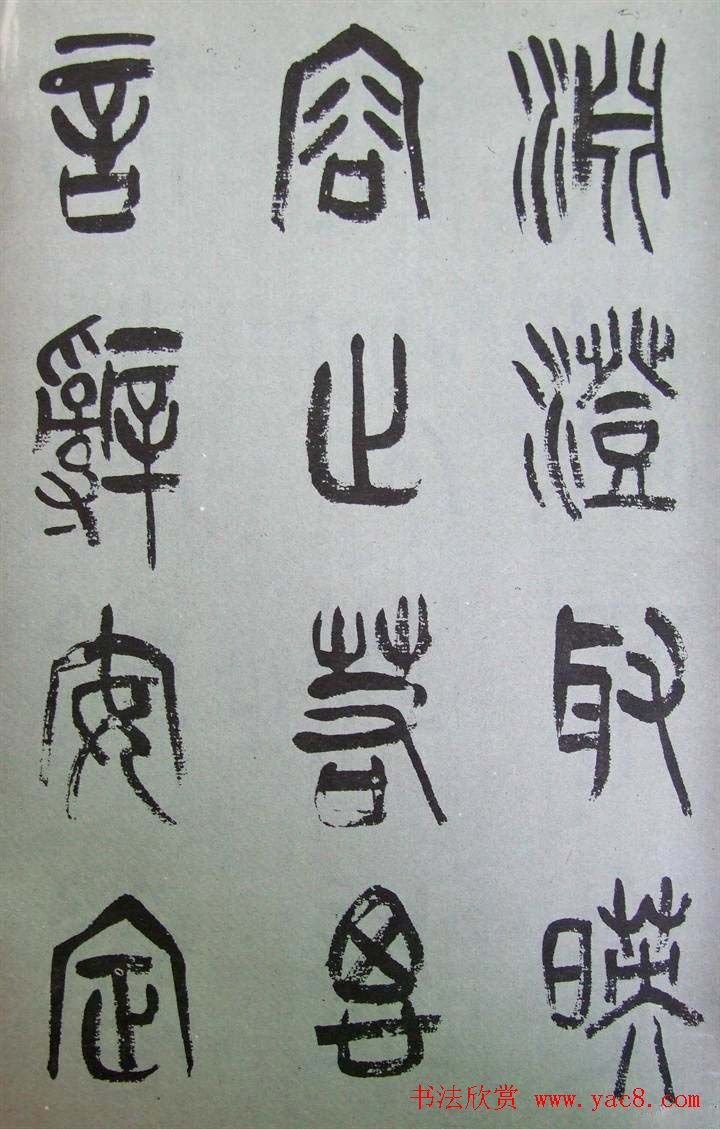 淵澄取暎
容止若思
言辭安定
书法欣赏 www.yac8.com